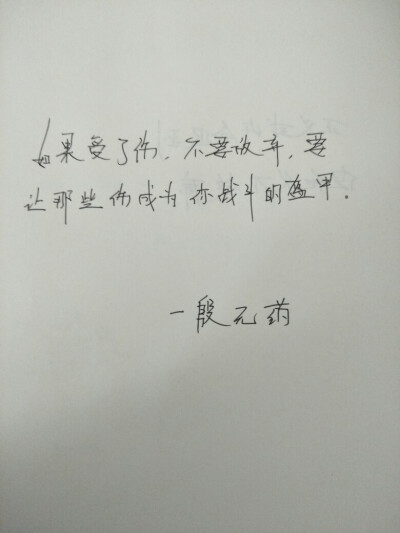 如果受了伤，不要放弃，要
让那些伤成为你战斗的盔甲.
一殷元药